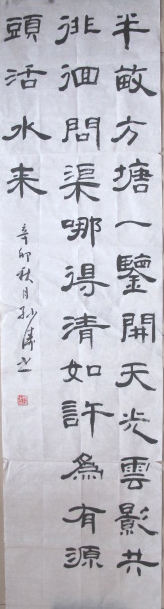 半畝方塘一鑒開天光雲影共
徘徊問渠哪得清如許為有源
頭活水来
辛卯秋月